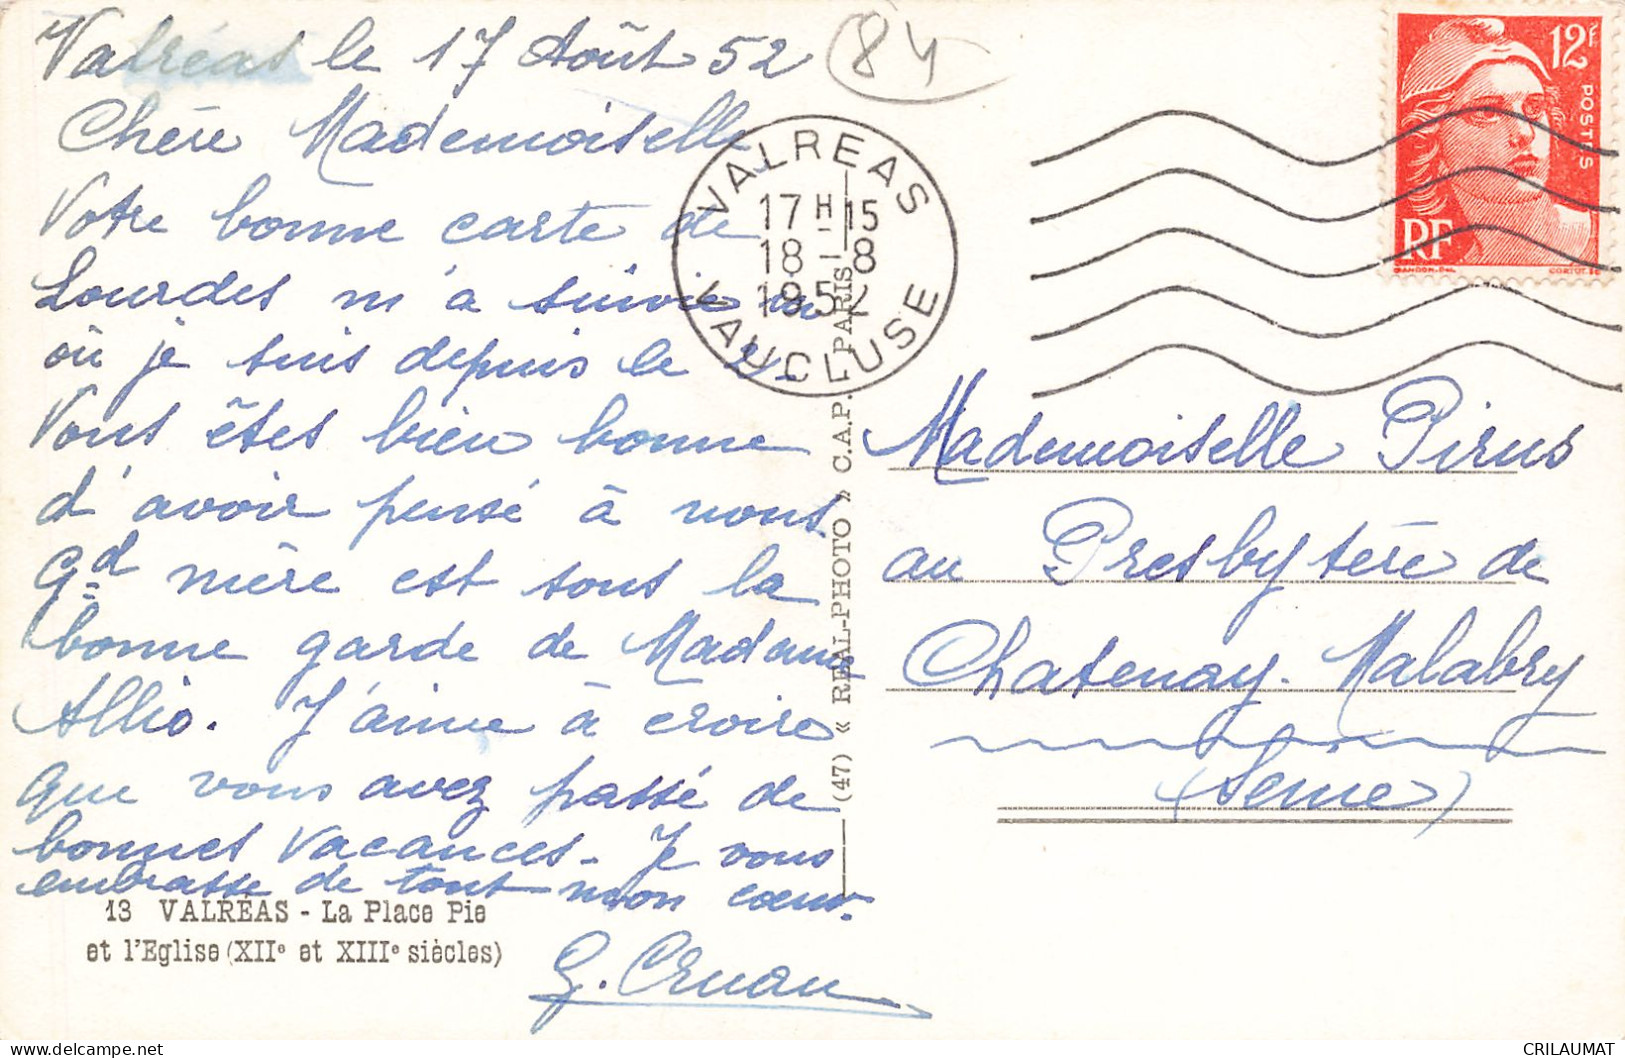 Valréas le 17 Août 52
84
Chère Mademoiselle
Votre bonne carte de
Lourdes m'a suivie
où je suis depuis le
Vous êtes bien bonne
d'avoir pensé à nous
Gd mère est sous la
bonne garde de Madame
Allio. J'aime à croire
que vous avez passé de
bonnes vacances. Je vous
embrasse de tout mon cœur.
13 VALRÉAS - La Place Pie
et l'Eglise (XIIe et XIIIe siècles)
(47) « REAL-PHOTO » C.A.P. PARIS
VALREAS
17 H 15
18 - 8
1952
VAUCLUSE
12F
POSTES
RF
GANDON.DEL
Mademoiselle Pirus
au Presbytère de
Chatenay-Malabry
(Seine)
CRILAUMAT